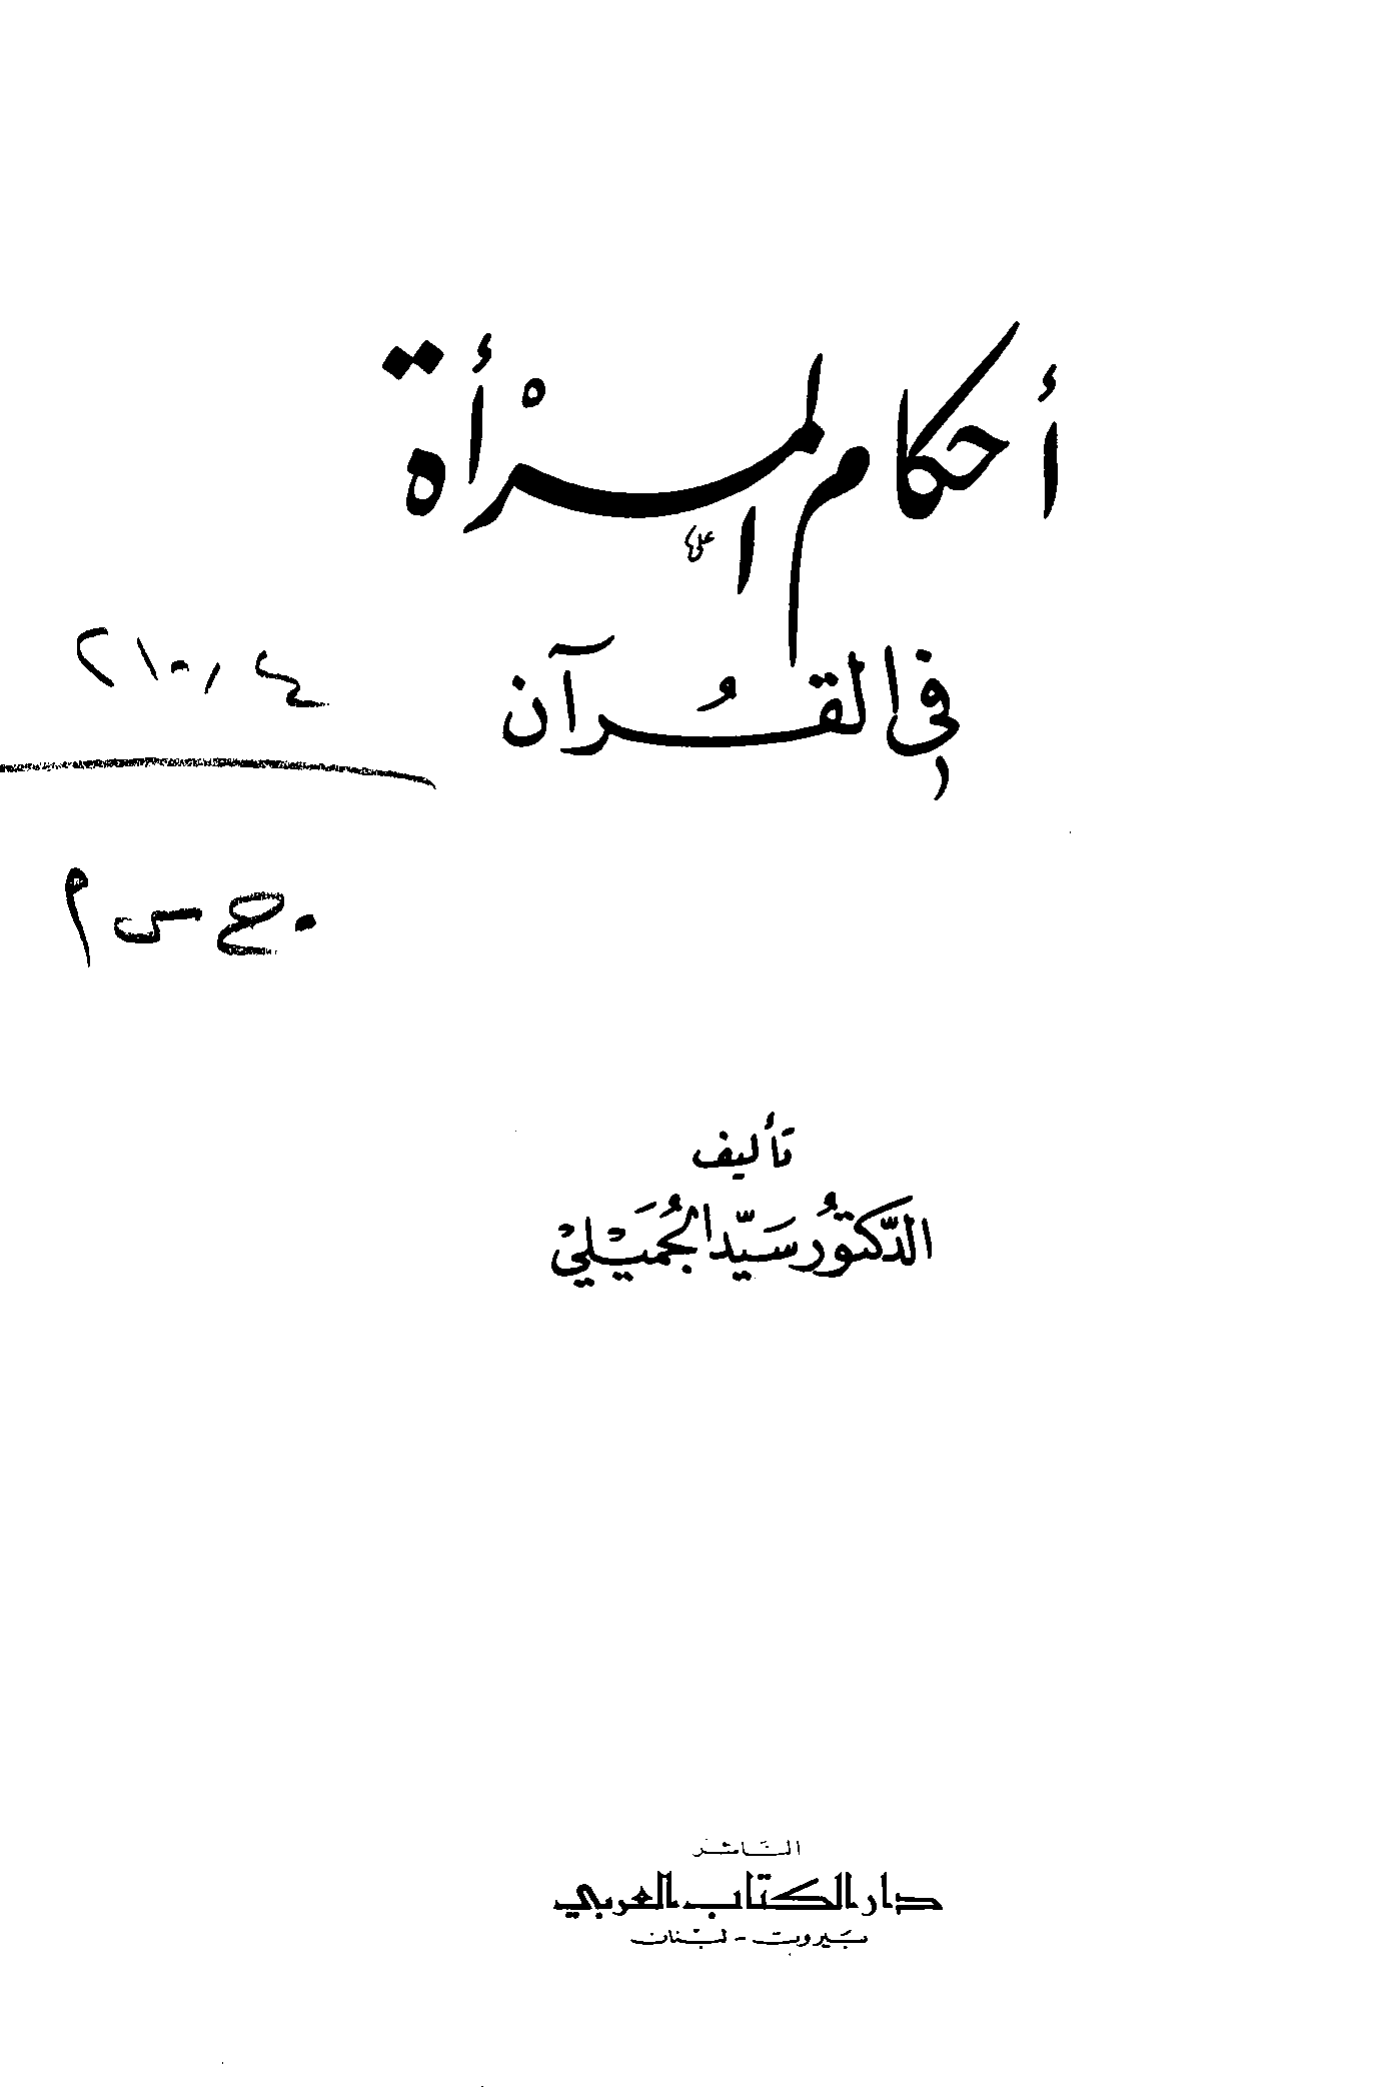 أحكام المرْأة
في القُرآن
٢١٠,٤
تأليف
الدّكتورُ سَيّد الجُمَيْليْ
الناشر
دار الكتاب العربي
بَيروت - لبْنان